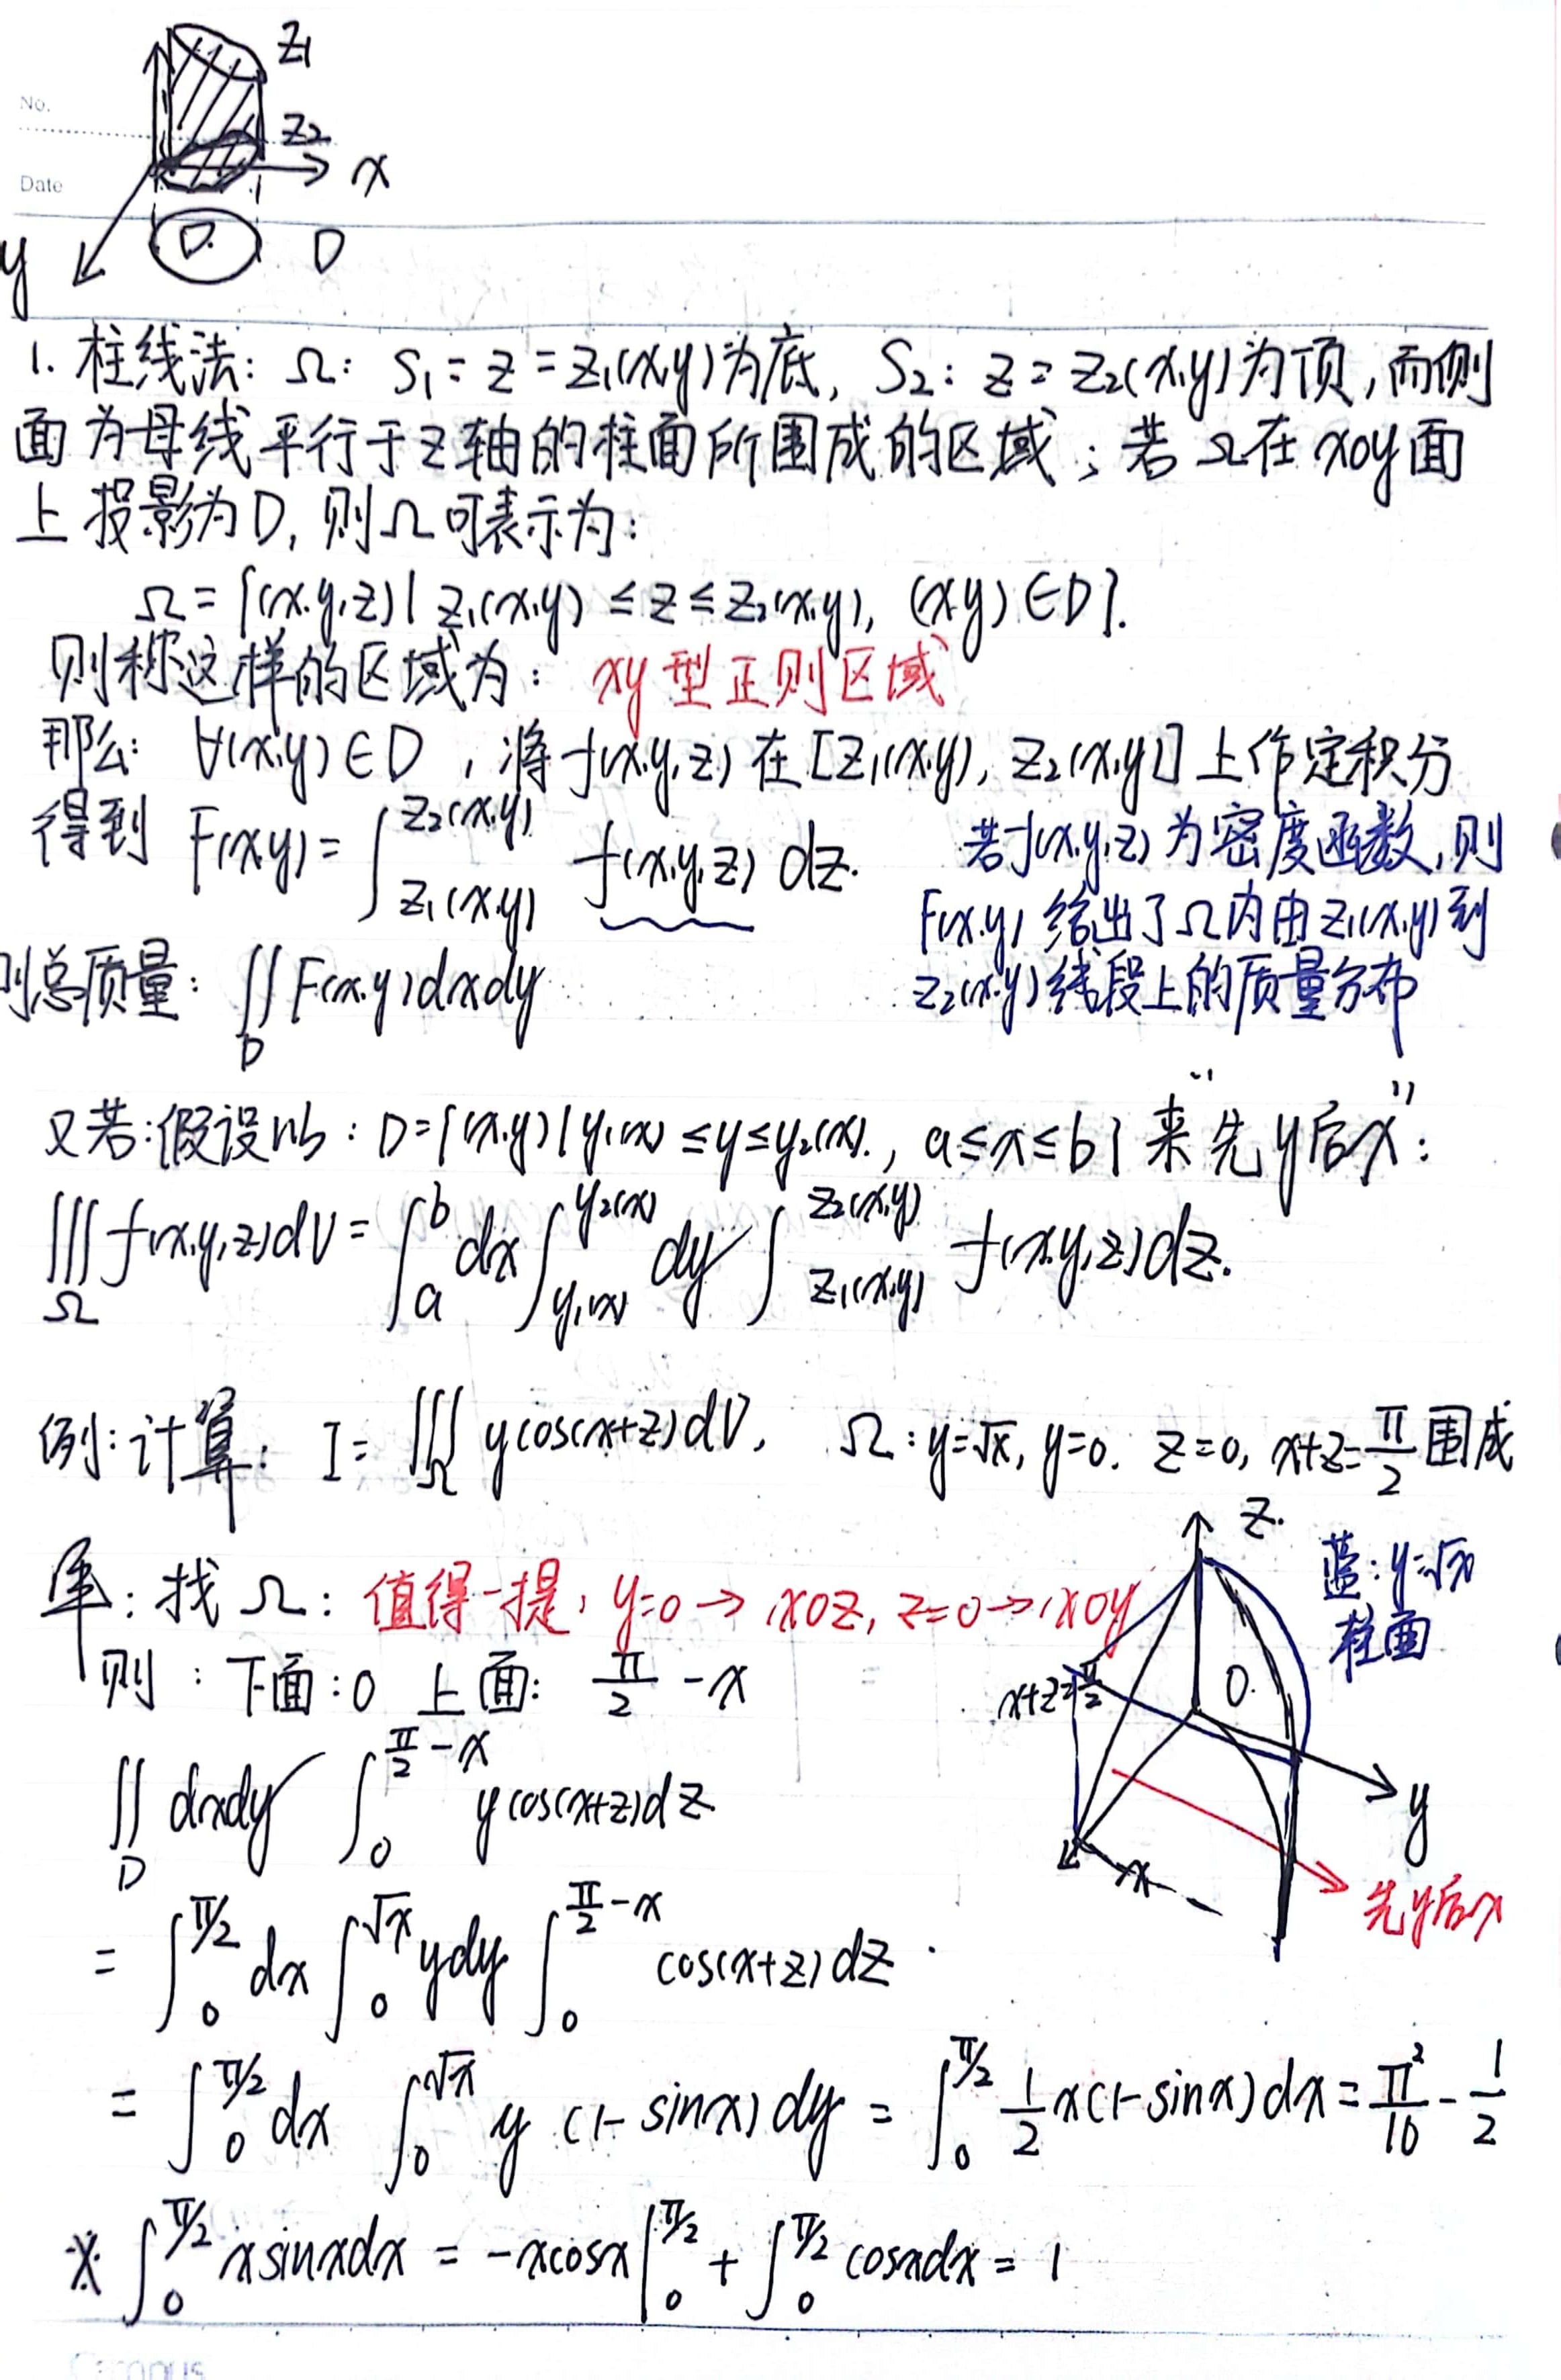 No.
Date
z1
z2
x
y
D.
D
1. 柱线法: Ω: S₁: z = z₁(x,y)为底, S₂: z = z₂(x,y)为顶, 而侧
面为母线平行于z轴的柱面所围成的区域; 若Ω在xoy面
上投影为D, 则Ω可表示为:
Ω = {(x,y,z) | z₁(x,y) ≤ z ≤ z₂(x,y), (x,y) ∈ D}.
则称这样的区域为: xy型正则区域
那么: ∀(x,y) ∈ D , 将f(x,y,z) 在 [z₁(x,y), z₂(x,y)] 上作定积分
得到 F(x,y) = ∫_{z₁(x,y)}^{z₂(x,y)} f(x,y,z) dz.
若f(x,y,z) 为密度函数, 则
F(x,y) 给出了Ω内由z₁(x,y)到
z₂(x,y)线段上的质量分布
则总质量: ∬_D F(x,y)dxdy
又若:假设以: D={(x,y)|y₁(x) ≤ y ≤ y₂(x), a ≤ x ≤ b} 来“先y后x”:
∭_Ω f(x,y,z)dV = ∫_a^b dx ∫_{y₁(x)}^{y₂(x)} dy ∫_{z₁(x,y)}^{z₂(x,y)} f(x,y,z)dz.
例:计算: I = ∭_Ω ycos(x+z)dV, Ω: y=√x, y=0. z=0, x+z=π/2 围成
解: 找Ω: 值得一提, y=0→xoz, z=0→xoy
则: 下面:0 上面: π/2 - x
z.
蓝: y=√x
柱面
x+z=π/2
0.
y
x
先y后x
∬_D dxdy ∫_0^{π/2 - x} ycos(x+z)dz
= ∫_0^{π/2} dx ∫_0^{√x} ydy ∫_0^{π/2 - x} cos(x+z)dz.
= ∫_0^{π/2} dx ∫_0^{√x} y (1-sinx)dy = ∫_0^{π/2} 1/2 x(1-sinx)dx = π²/16 - 1/2
※ ∫_0^{π/2} xsinxdx = -xcosx|_0^{π/2} + ∫_0^{π/2} cosxdx = 1
Campus